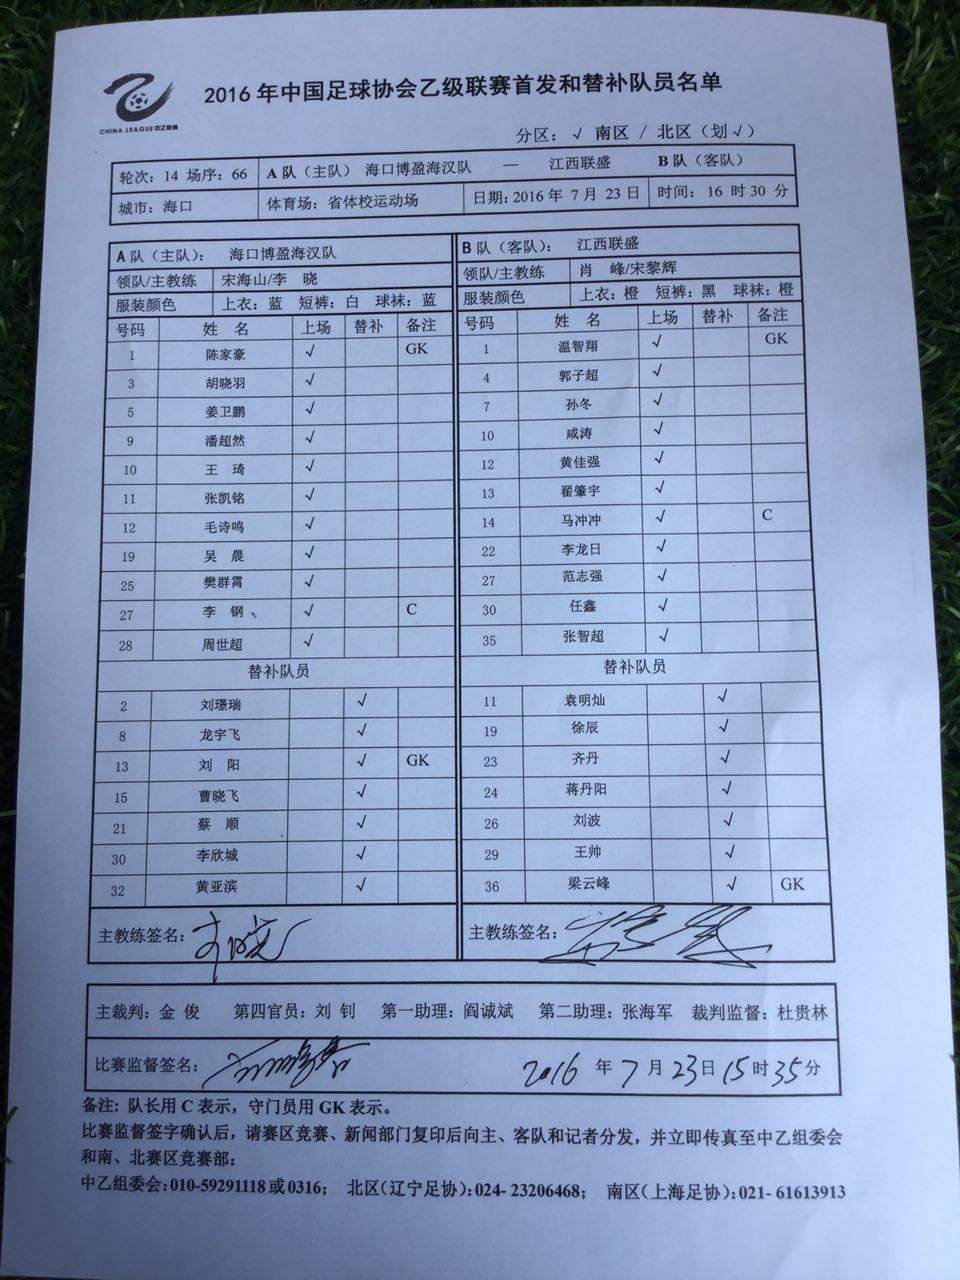 2016年中国足球协会乙级联赛首发和替补队员名单
CHINA LEAGUE 中乙联赛
分区：√ 南区 / 北区（划√）
轮次：14 场序：66 A队（主队） 海口博盈海汉队 — 江西联盛 B队（客队）
城市：海口 体育场：省体校运动场 日期：2016年7月23日 时间：16时30分
A队（主队）： 海口博盈海汉队
领队/主教练 宋海山/李 晓
服装颜色 上衣：蓝 短裤：白 球袜：蓝
号码 姓名 上场 替补 备注
1 陈家豪 √ GK
3 胡晓羽 √
5 姜卫鹏 √
9 潘超然 √
10 王 琦 √
11 张凯铭 √
12 毛诗鸣 √
19 吴 晨 √
25 樊群霄 √
27 李 钢 √ C
28 周世超 √
替补队员
2 刘璟瑞 √
8 龙宇飞 √
13 刘 阳 √ GK
15 曹晓飞 √
21 蔡 顺 √
30 李欣城 √
32 黄亚滨 √
主教练签名：
B队（客队）： 江西联盛
领队/主教练 肖 峰/宋黎辉
服装颜色 上衣：橙 短裤：黑 球袜：橙
号码 姓名 上场 替补 备注
1 温智翔 √ GK
4 郭子超 √
7 孙冬 √
10 咸涛 √
12 黄佳强 √
13 翟肇宇 √
14 马冲冲 √ C
22 李龙日 √
27 范志强 √
30 任鑫 √
35 张智超 √
替补队员
11 袁明灿 √
19 徐辰 √
23 齐丹 √
24 蒋丹阳 √
26 刘波 √
29 王帅 √
36 梁云峰 √ GK
主教练签名：
主裁判：金 俊 第四官员：刘 钊 第一助理：阎诚斌 第二助理：张海军 裁判监督：杜贵林
比赛监督签名： 2016年7月23日15时35分
备注：队长用C表示，守门员用GK表示。
比赛监督签字确认后，请赛区竞赛、新闻部门复印后向主、客队和记者分发，并立即传真至中乙组委会
和南、北赛区竞赛部：
中乙组委会:010-59291118或0316； 北区(辽宁足协):024- 23206468； 南区(上海足协):021- 61613913